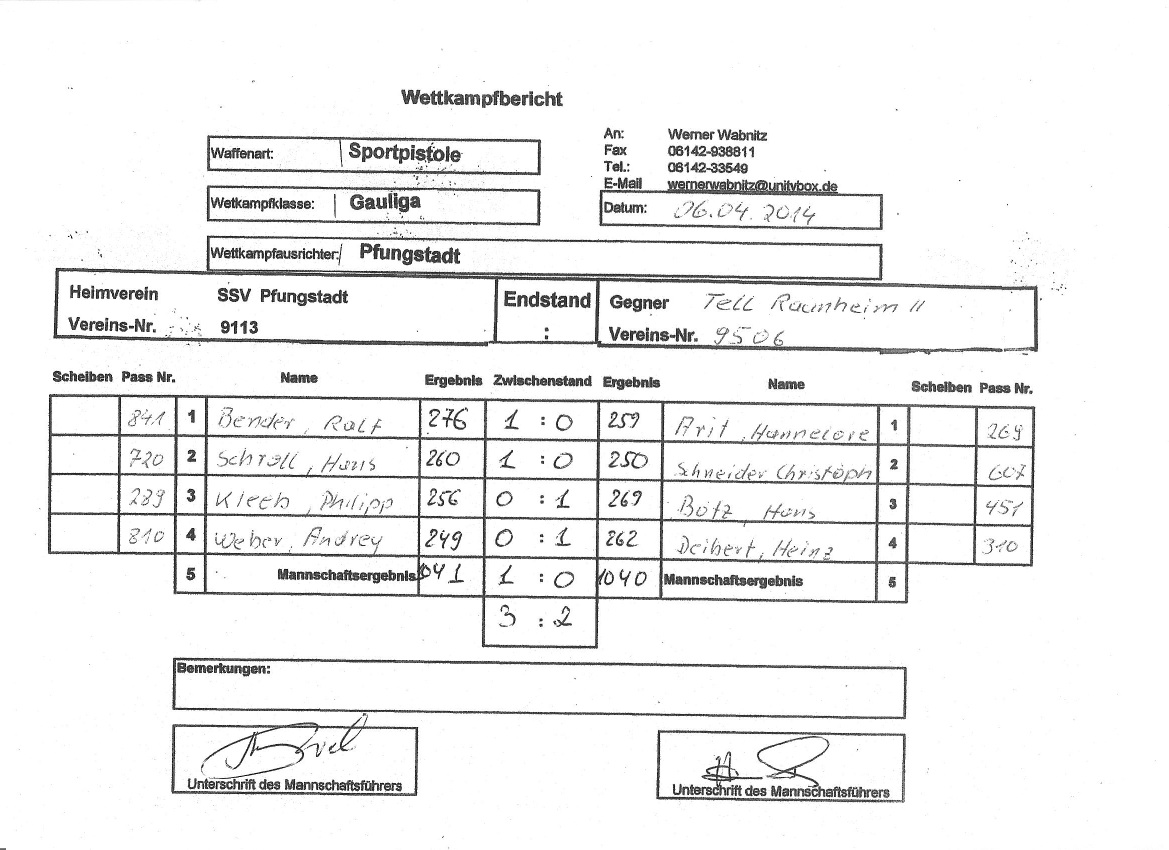 Wettkampfbericht
Waffenart: Sportpistole
An: Werner Wabnitz
Fax 06142-938811
Tel.: 06142-33549
E-Mail wernerwabnitz@unitybox.de
Wetkampfklasse: Gauliga
Datum: 06.04.2014
Wettkampfausrichter: Pfungstadt
Heimverein SSV Pfungstadt Endstand Gegner Tell Raunheim II
Vereins-Nr. 9113 : Vereins-Nr. 9506
Scheiben Pass Nr. Name Ergebnis Zwischenstand Ergebnis Name Scheiben Pass Nr.
841 1 Bender, Ralf 276 1 : 0 259 Arit, Hannelore 1 269
720 2 Schroll, Hans 260 1 : 0 250 Schneider Christoph 2 607
289 3 Kleeb, Philipp 256 0 : 1 269 Botz, Hans 3 451
810 4 Weber, Andrey 249 0 : 1 262 Deibert, Heinz 4 310
5 Mannschaftsergebnis 1041 1 : 0 1040 Mannschaftsergebnis 5
3 : 2
Bemerkungen:
Unterschrift des Mannschaftsführers
Unterschrift des Mannschaftsführers